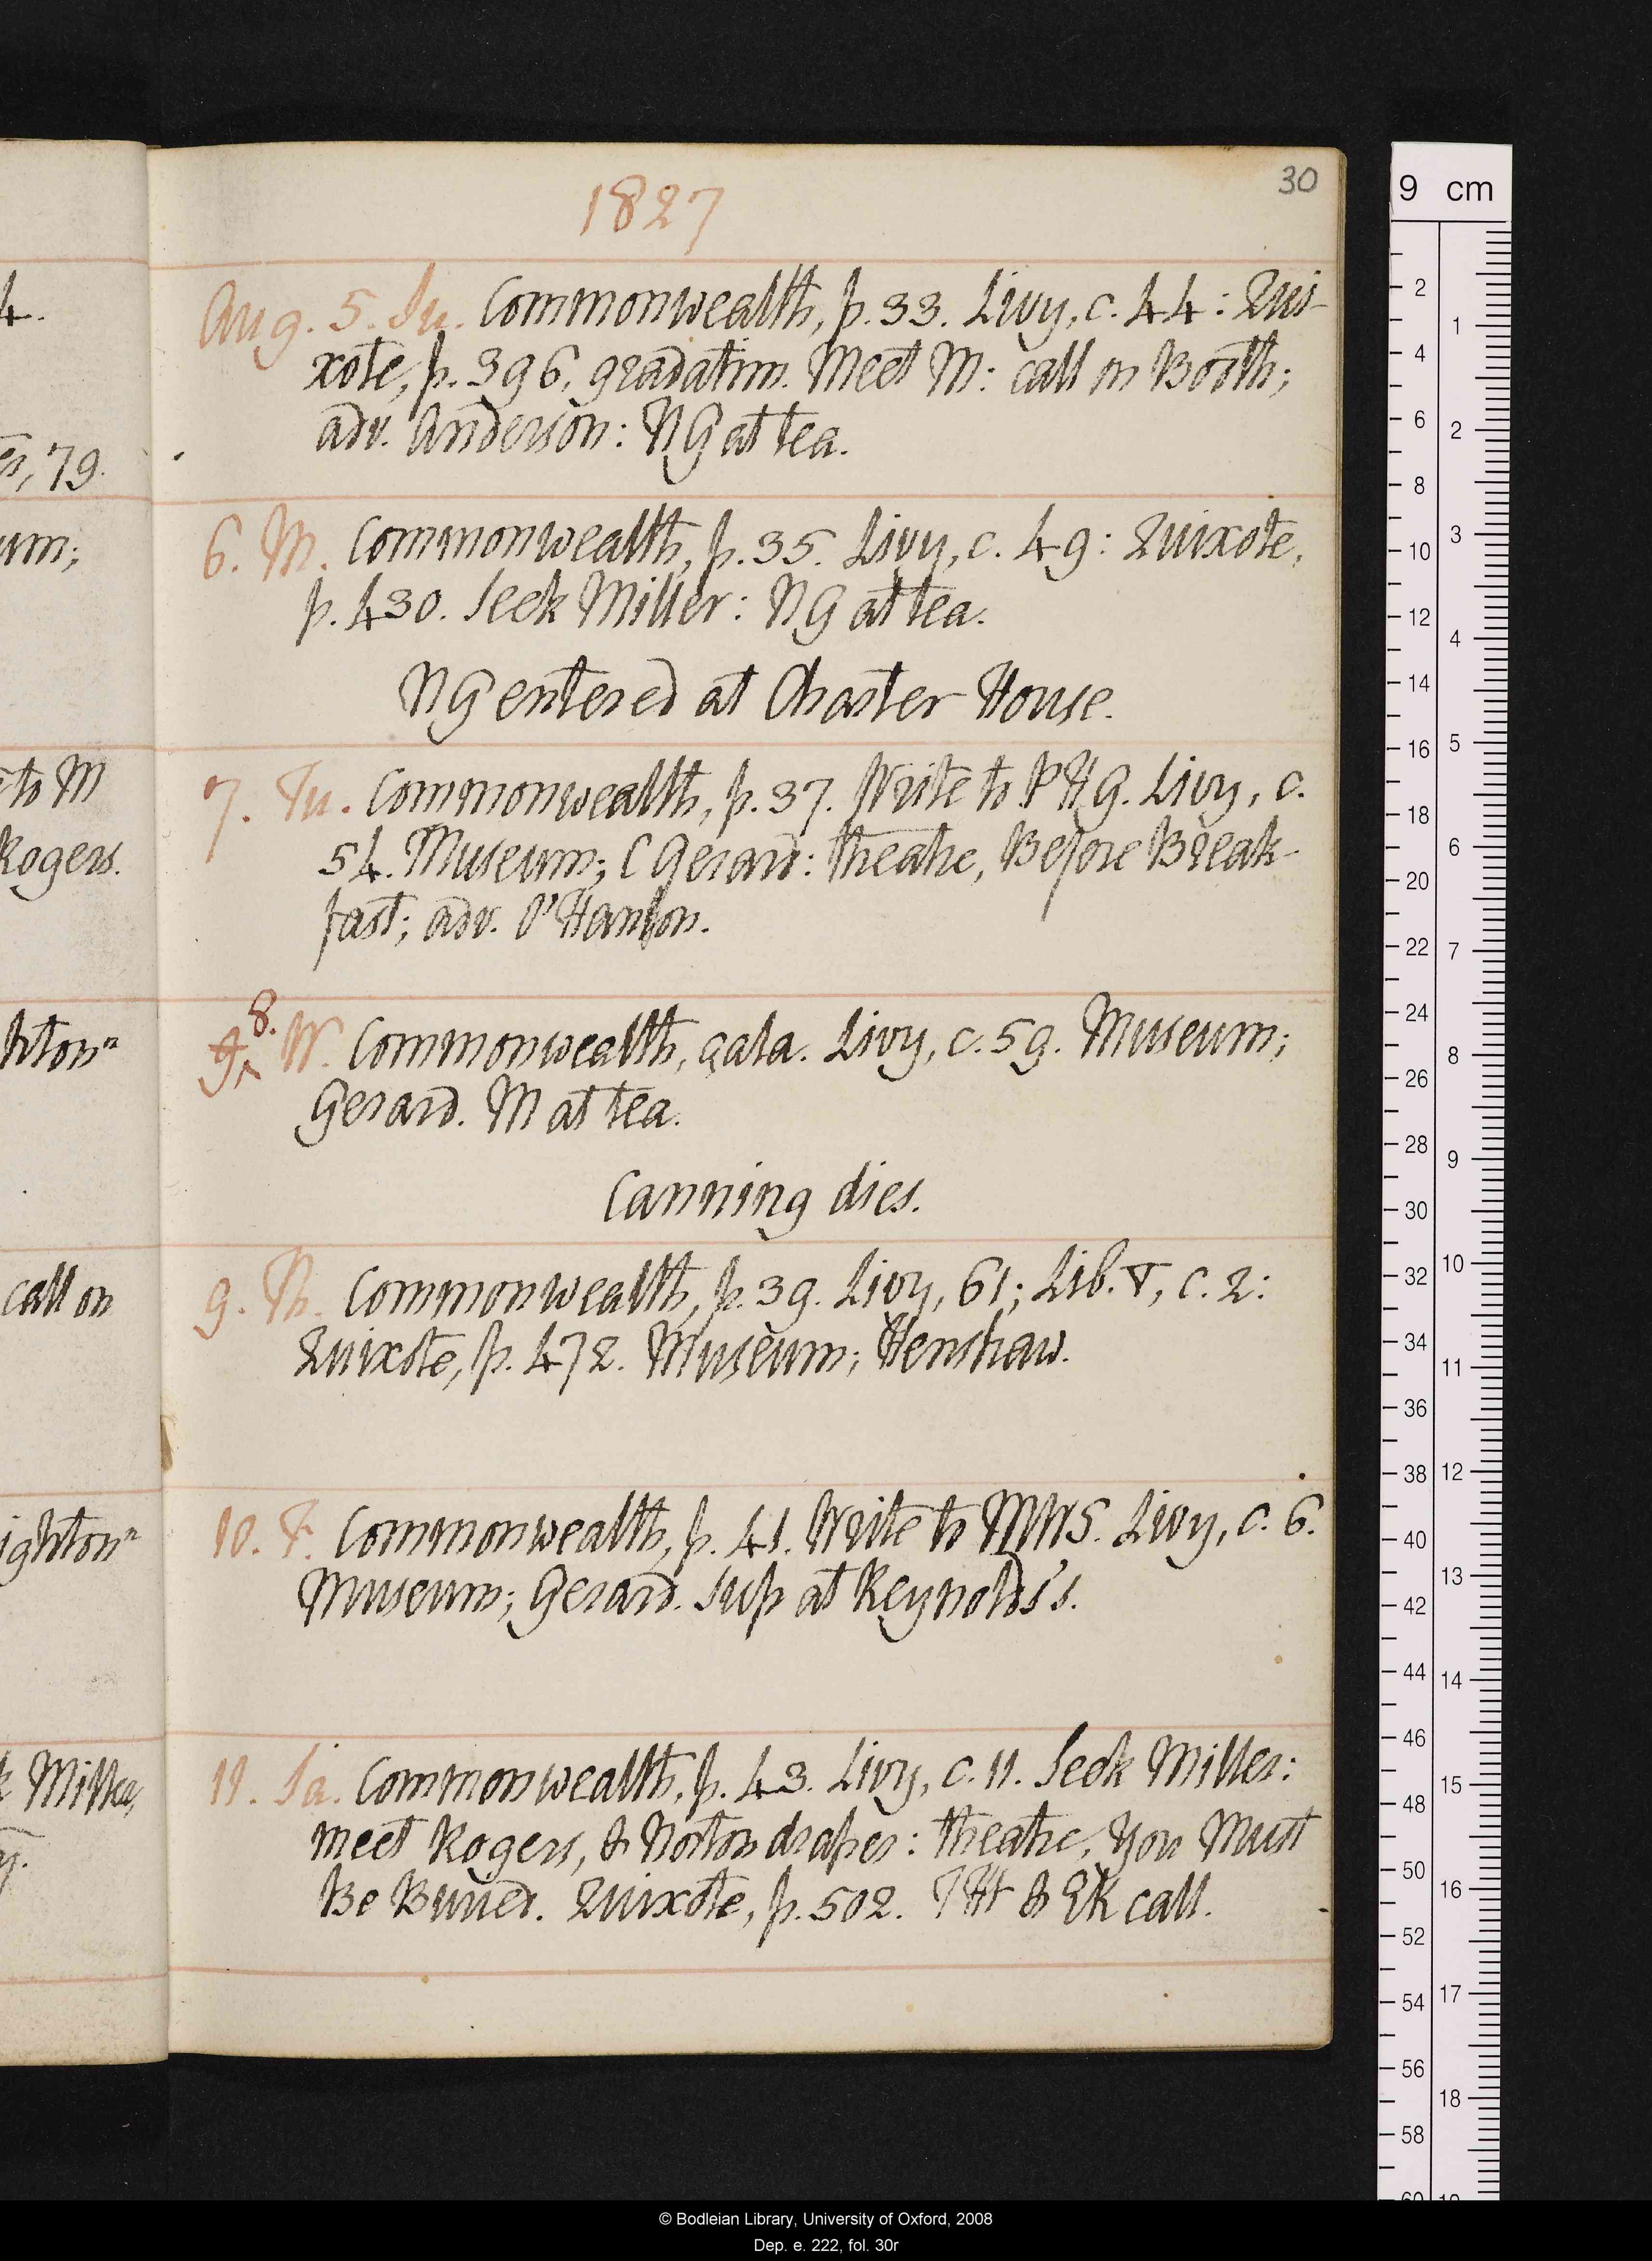 30
1827
Aug. 5. Su. Commonwealth, p. 33. Livy, c. 44: Qui-
xote, p. 396, gradatim. Meet M: call on Booth;
adv. Anderson: NG at tea.
6. M. Commonwealth, p. 35. Livy, c. 49: Quixote,
p. 430. Seek Miller: NG at tea.
NG entered at Charter House.
7. Tu. Commonwealth, p. 37. Write to PHG. Livy, c.
54. Museum; C Gerard: theatre, Before Break-
fast; adv. O'Hanlon.
9. 8. W. Commonwealth, çala. Livy, c. 59. Museum;
Gerard. M at tea.
Canning dies.
9. Th. Commonwealth, p. 39. Livy, 61; Lib. V, c. 2:
Quixote, p. 472. Museum; Henshaw.
10. F. Commonwealth, p. 41. Write to MWS. Livy, c. 6.
Museum; Gerard. Sup at Reynolds's.
11. Sa. Commonwealth, p. 43. Livy, c. 11. Seek Miller:
meet Rogers, & Norton draper: theatre, You Must
Be Buried. Quixote, p. 502. THt & EK call.
4.
es, 79.
um;
to M
Rogers.
hton
call on
ighton
Miller,
y.
9 cm
2
4
6
8
10
12
14
16
18
20
22
24
26
28
30
32
34
36
38
40
42
44
46
48
50
52
54
56
58
60
1
2
3
4
5
6
7
8
9
10
11
12
13
14
15
16
17
18
© Bodleian Library, University of Oxford, 2008
Dep. e. 222, fol. 30r